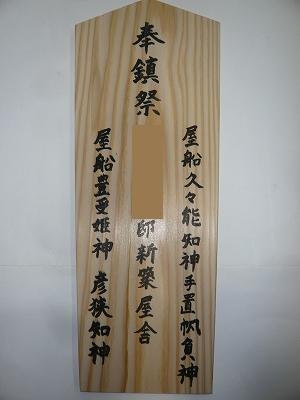 屋船久々能知神 手置帆負神
奉鎮祭 邸新築屋舎
屋船豊受姫神 彦狭知神